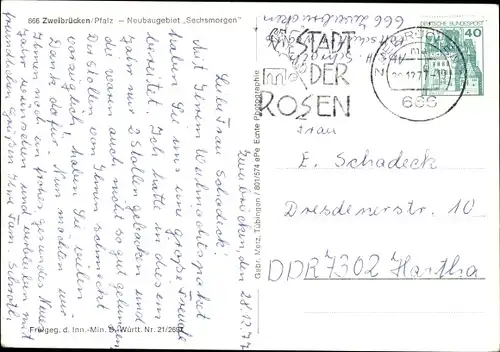 666 Zweibrücken/Pfalz – Neubaugebiet „Sechsmorgen"
Zweibrücken, den 28.12.77
Liebe Frau Schadeck!
Mit Ihrem Weihnachtspaket
haben Sie uns große Freude
bereitet. Ich hatte in diesem
Jahr nur 2 Stollen gebacken und
die waren auch nicht so gut gelungen.
Der Stollen von Ihnen schmeckt
vorzüglich, haben Sie vielen
Dank dafür. Nun möchten wir
Ihnen noch ein frohes, gesundes Neues
Jahr wünschen und verbleiben mit
freundlichen Grüßen Ihre Fam. Schrott.
Freigeg. d. Inn.-Min. B.-Württ. Nr. 21/2691
Gebr. Metz, Tübingen / 801/574 ePe Echte Photographie
666 Zweibrücken
STADT
DER
ROSEN
666
DEUTSCHE BUNDESPOST
40
Frau
E. Schadeck
Dresdenerstr. 10
DDR 7302 Hartha